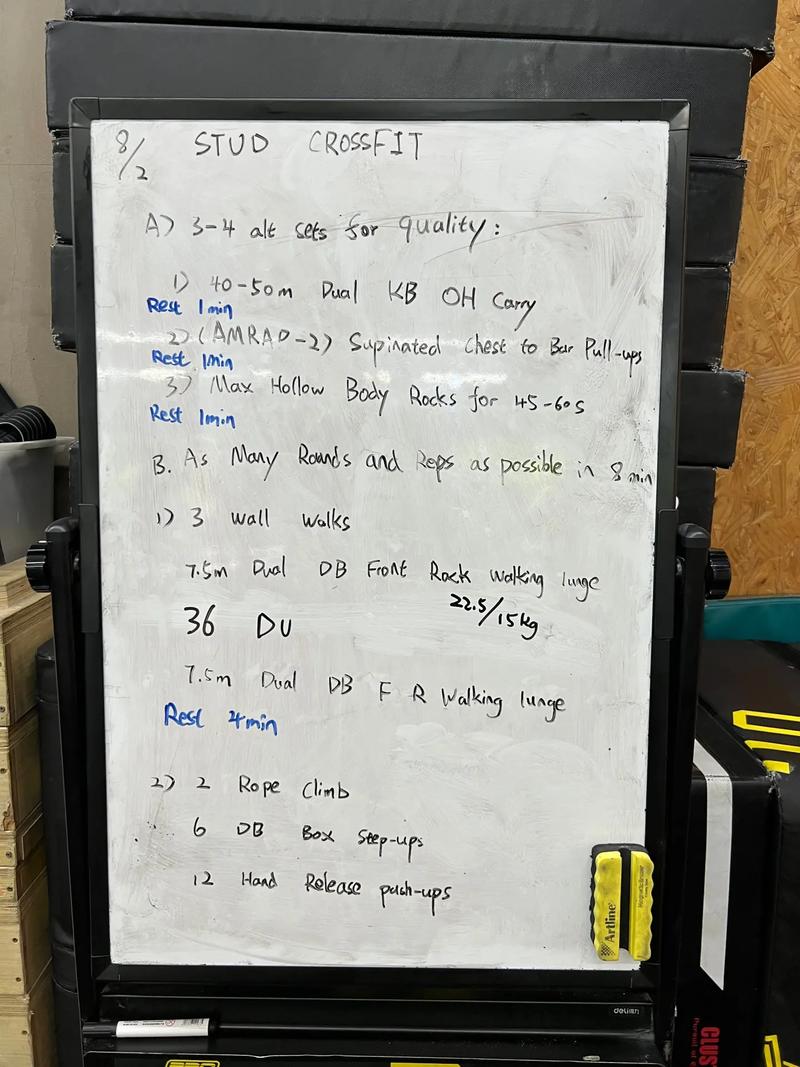 8/2 STUD CROSSFIT
A) 3-4 alt sets for quality:
1) 40-50m Dual KB OH Carry
Rest 1min
2) (AMRAP-2) Supinated Chest to Bar Pull-ups
Rest 1min
3) Max Hollow Body Rocks for 45-60s
Rest 1min
B. As Many Rounds and Reps as possible in 8 min
1) 3 wall walks
7.5m Dual DB Front Rack walking lunge
22.5/15kg
36 DU
7.5m Dual DB F R Walking lunge
Rest 4min
2) 2 Rope Climb
6 DB Box Step-ups
12 Hand Release push-ups
Artline
deli
CLUS